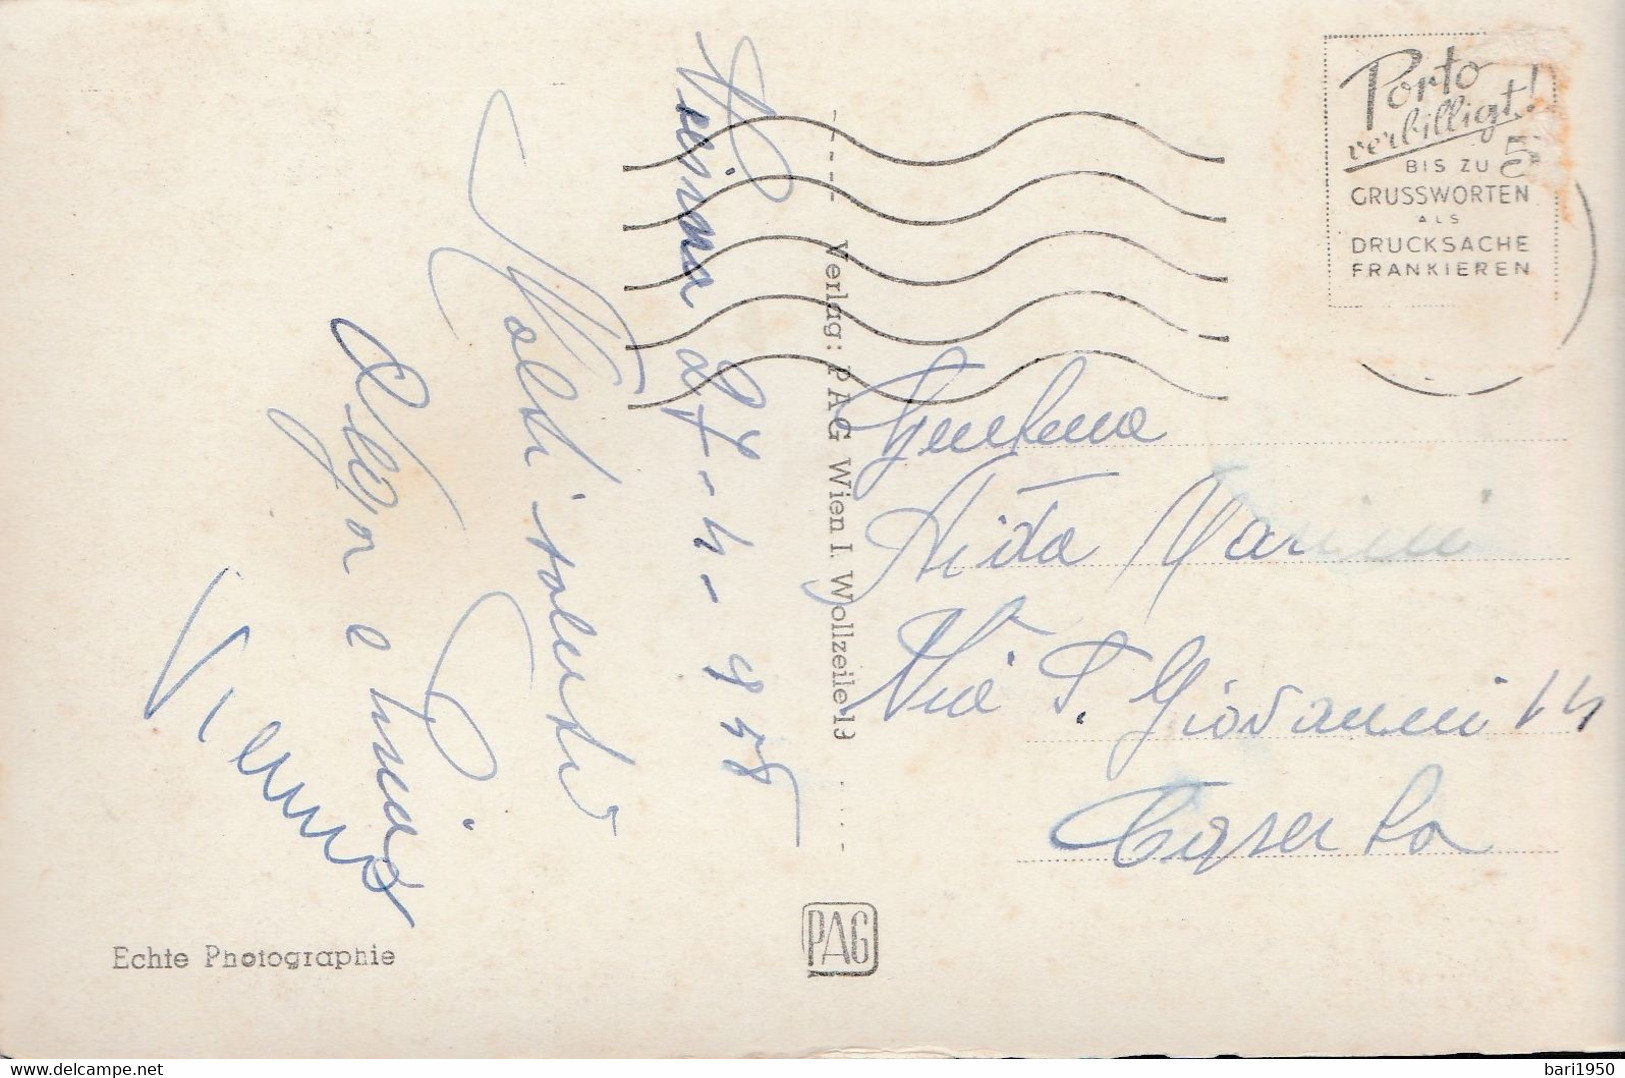 Vienna 27-4-958
Molti saluti
Olga e Pinia
Porto
verbilligt!
BIS ZU 5
GRUSSWORTEN
ALS
DRUCKSACHE
FRANKIEREN
Verlag: PAG Wien I. Wollzeile 19
Gentma
Aida Marini
Via S. Giovanni 14
Caserta
PAG
Echte Photographie
delcampe.net
bari1950